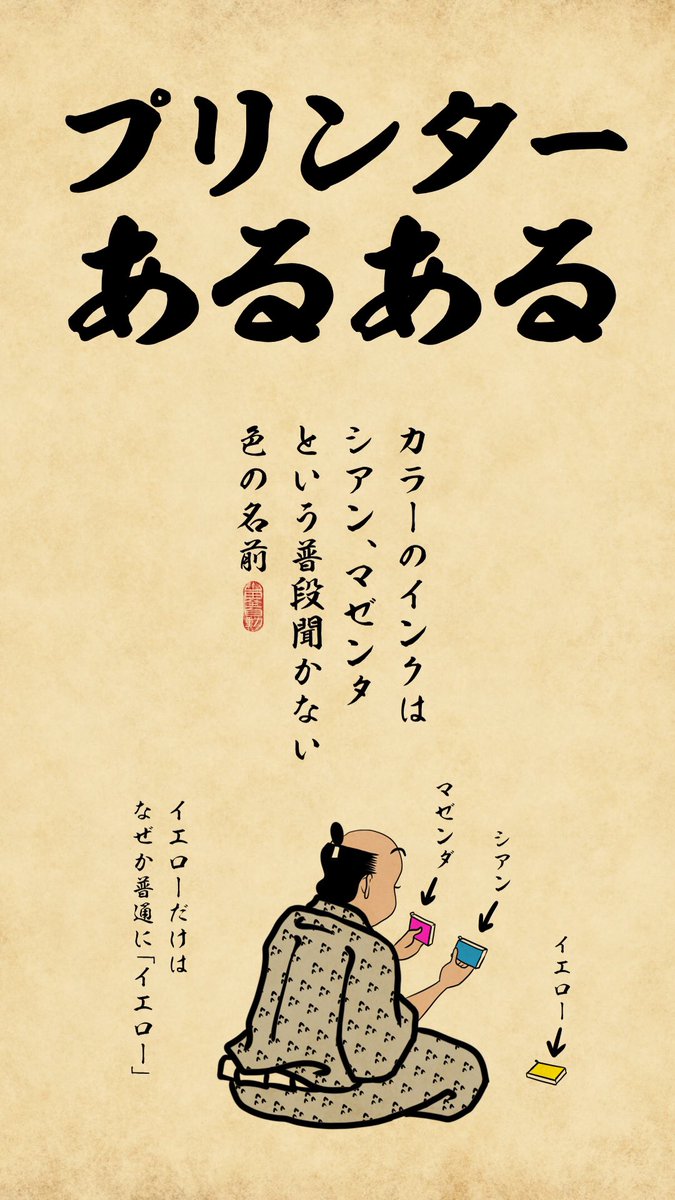 プリンター
あるある
カラーのインクは
シアン、マゼンタ
という普段聞かない
色の名前
マゼンダ
シアン
イエロー
イエローだけは
なぜか普通に「イエロー」